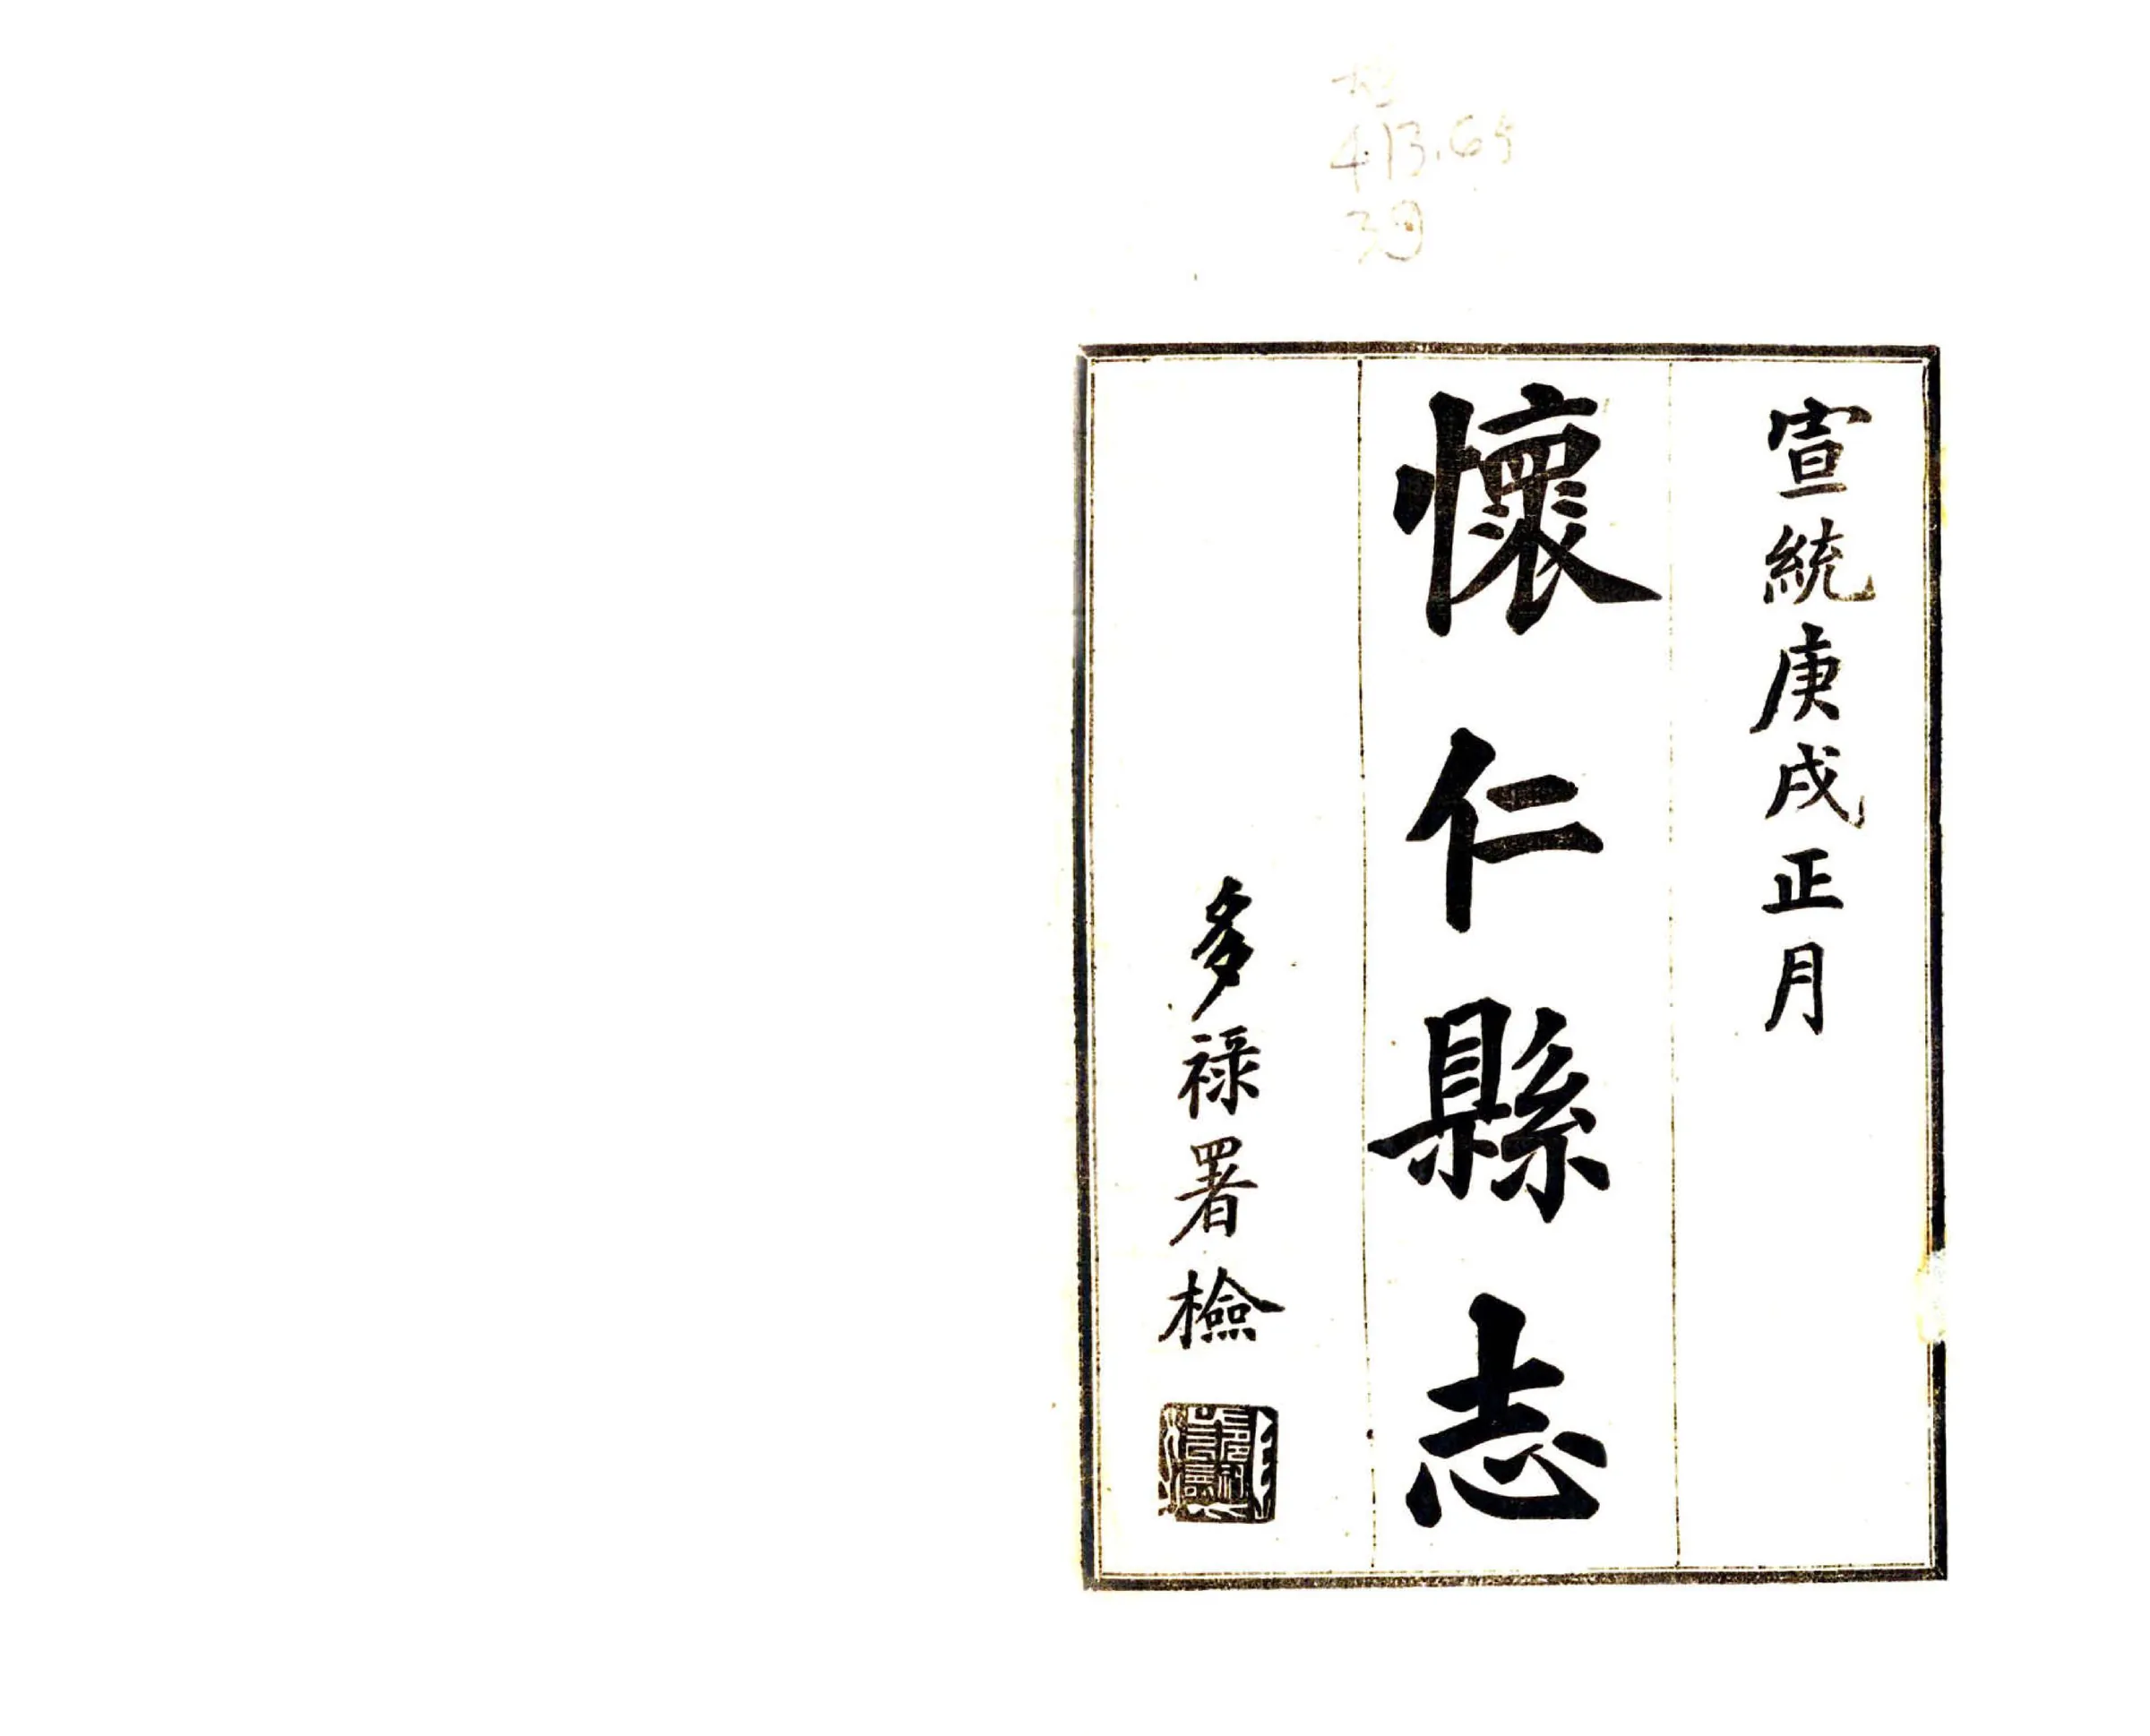 413.65
宣統庚戌正月
懷仁縣志
多祿署檢